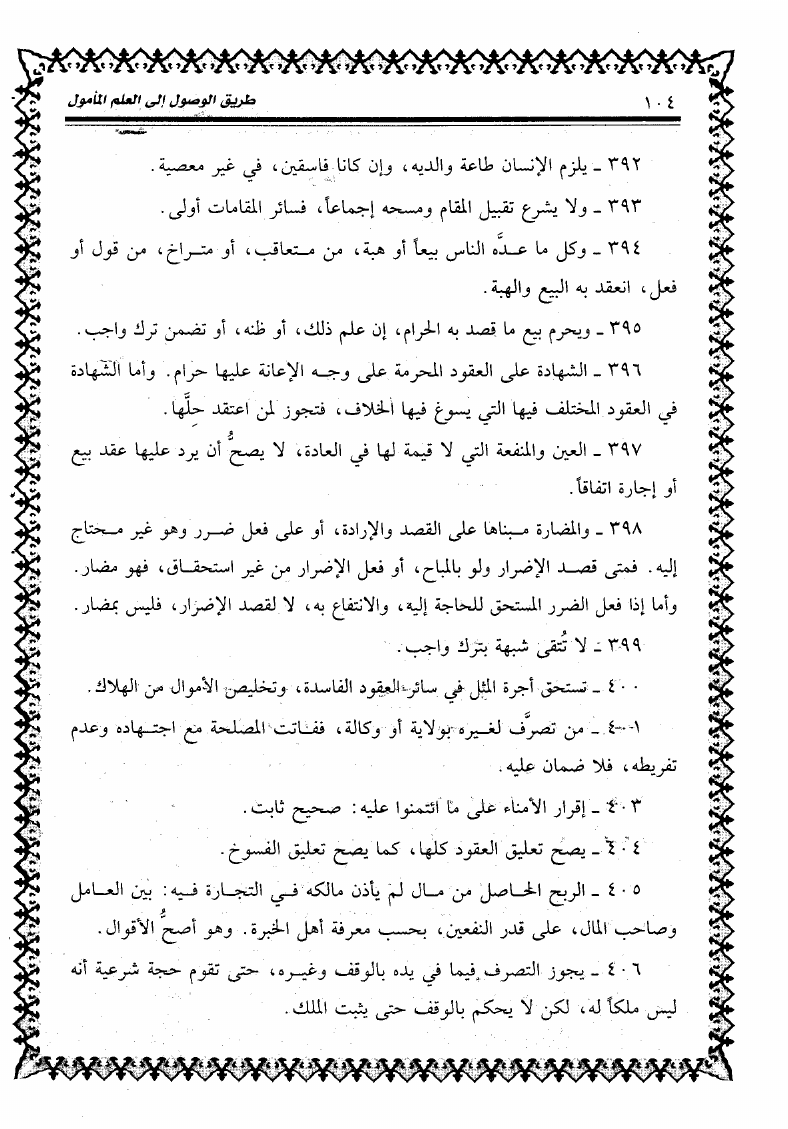 ١٠٤ طريق الوصول إلى العلم المأمول
٣٩٢ ـ يلزم الإنسان طاعة والديه، وإن كانا فاسقين، في غير معصية.
٣٩٣ ـ ولا يشرع تقبيل المقام ومسحه إجماعاً، فسائر المقامات أولى.
٣٩٤ ـ وكل ما عـدَّه الناس بيعاً أو هبة، من متعاقب، أو متراخ، من قول أو
فعل، انعقد به البيع والهبة.
٣٩٥ ـ ويحرم بيع ما قصد به الحرام، إن علم ذلك، أو ظنه، أو تضمن ترك واجب.
٣٩٦ ـ الشهادة على العقود المحرمة على وجه الإعانة عليها حرام. وأما الشهادة
في العقود المختلف فيها التي يسوغ فيها الخلاف، فتجوز لمن اعتقد حلَّها.
٣٩٧ ـ العين والمنفعة التي لا قيمة لها في العادة، لا يصحُّ أن يرد عليها عقد بيع
أو إجارة اتفاقاً.
٣٩٨ ـ والمضارة مبناها على القصد والإرادة، أو على فعل ضرر وهو غير محتاج
إليه. فمتى قصد الإضرار ولو بالمباح، أو فعل الإضرار من غير استحقاق، فهو مضار.
وأما إذا فعل الضرر المستحق للحاجة إليه، والانتفاع به، لا لقصد الإضرار، فليس بمضار.
٣٩٩ ـ لا تُتقى شبهة بترك واجب.
٤٠٠ ـ تستحق أجرة المثل في سائر العقود الفاسدة، وتخليص الأموال من الهلاك.
٤٠١ ـ من تصرَّف لغيره بولاية أو وكالة، ففاتت المصلحة مع اجتهاده وعدم
تفريطه، فلا ضمان عليه.
٤٠٣ ـ إقرار الأمناء على ما ائتمنوا عليه: صحيح ثابت.
٤٠٤ ـ يصح تعليق العقود كلها، كما يصح تعليق الفسوخ.
٤٠٥ ـ الربح الحاصل من مال لم يأذن مالكه في التجارة فيه: بين العامل
وصاحب المال، على قدر النفعين، بحسب معرفة أهل الخبرة. وهو أصحُّ الأقوال.
٤٠٦ ـ يجوز التصرف فيما في يده بالوقف وغيره، حتى تقوم حجة شرعية أنه
ليس ملكاً له، لكن لا يحكم بالوقف حتى يثبت الملك.